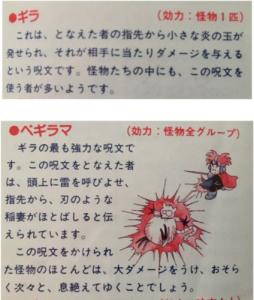 ●ギラ　（効力：怪物1匹）
これは、となえた者の指先から小さな炎の玉が
発せられ、それが相手に当たりダメージを与える
という呪文です。怪物たちの中にも、この呪文を
使う者が多いようです。
●ベギラマ　（効力：怪物全グループ）
ギラの最も強力な呪文で
す。この呪文をとなえた者
は、頭上に雷を呼びよせ、
指先から、刃のような
稲妻がほとばしると伝
えられています。
この呪文をかけられ
た怪物のほとんどは、大ダメージをうけ、おそら
く次々と、息絶えてゆくことでしょう。